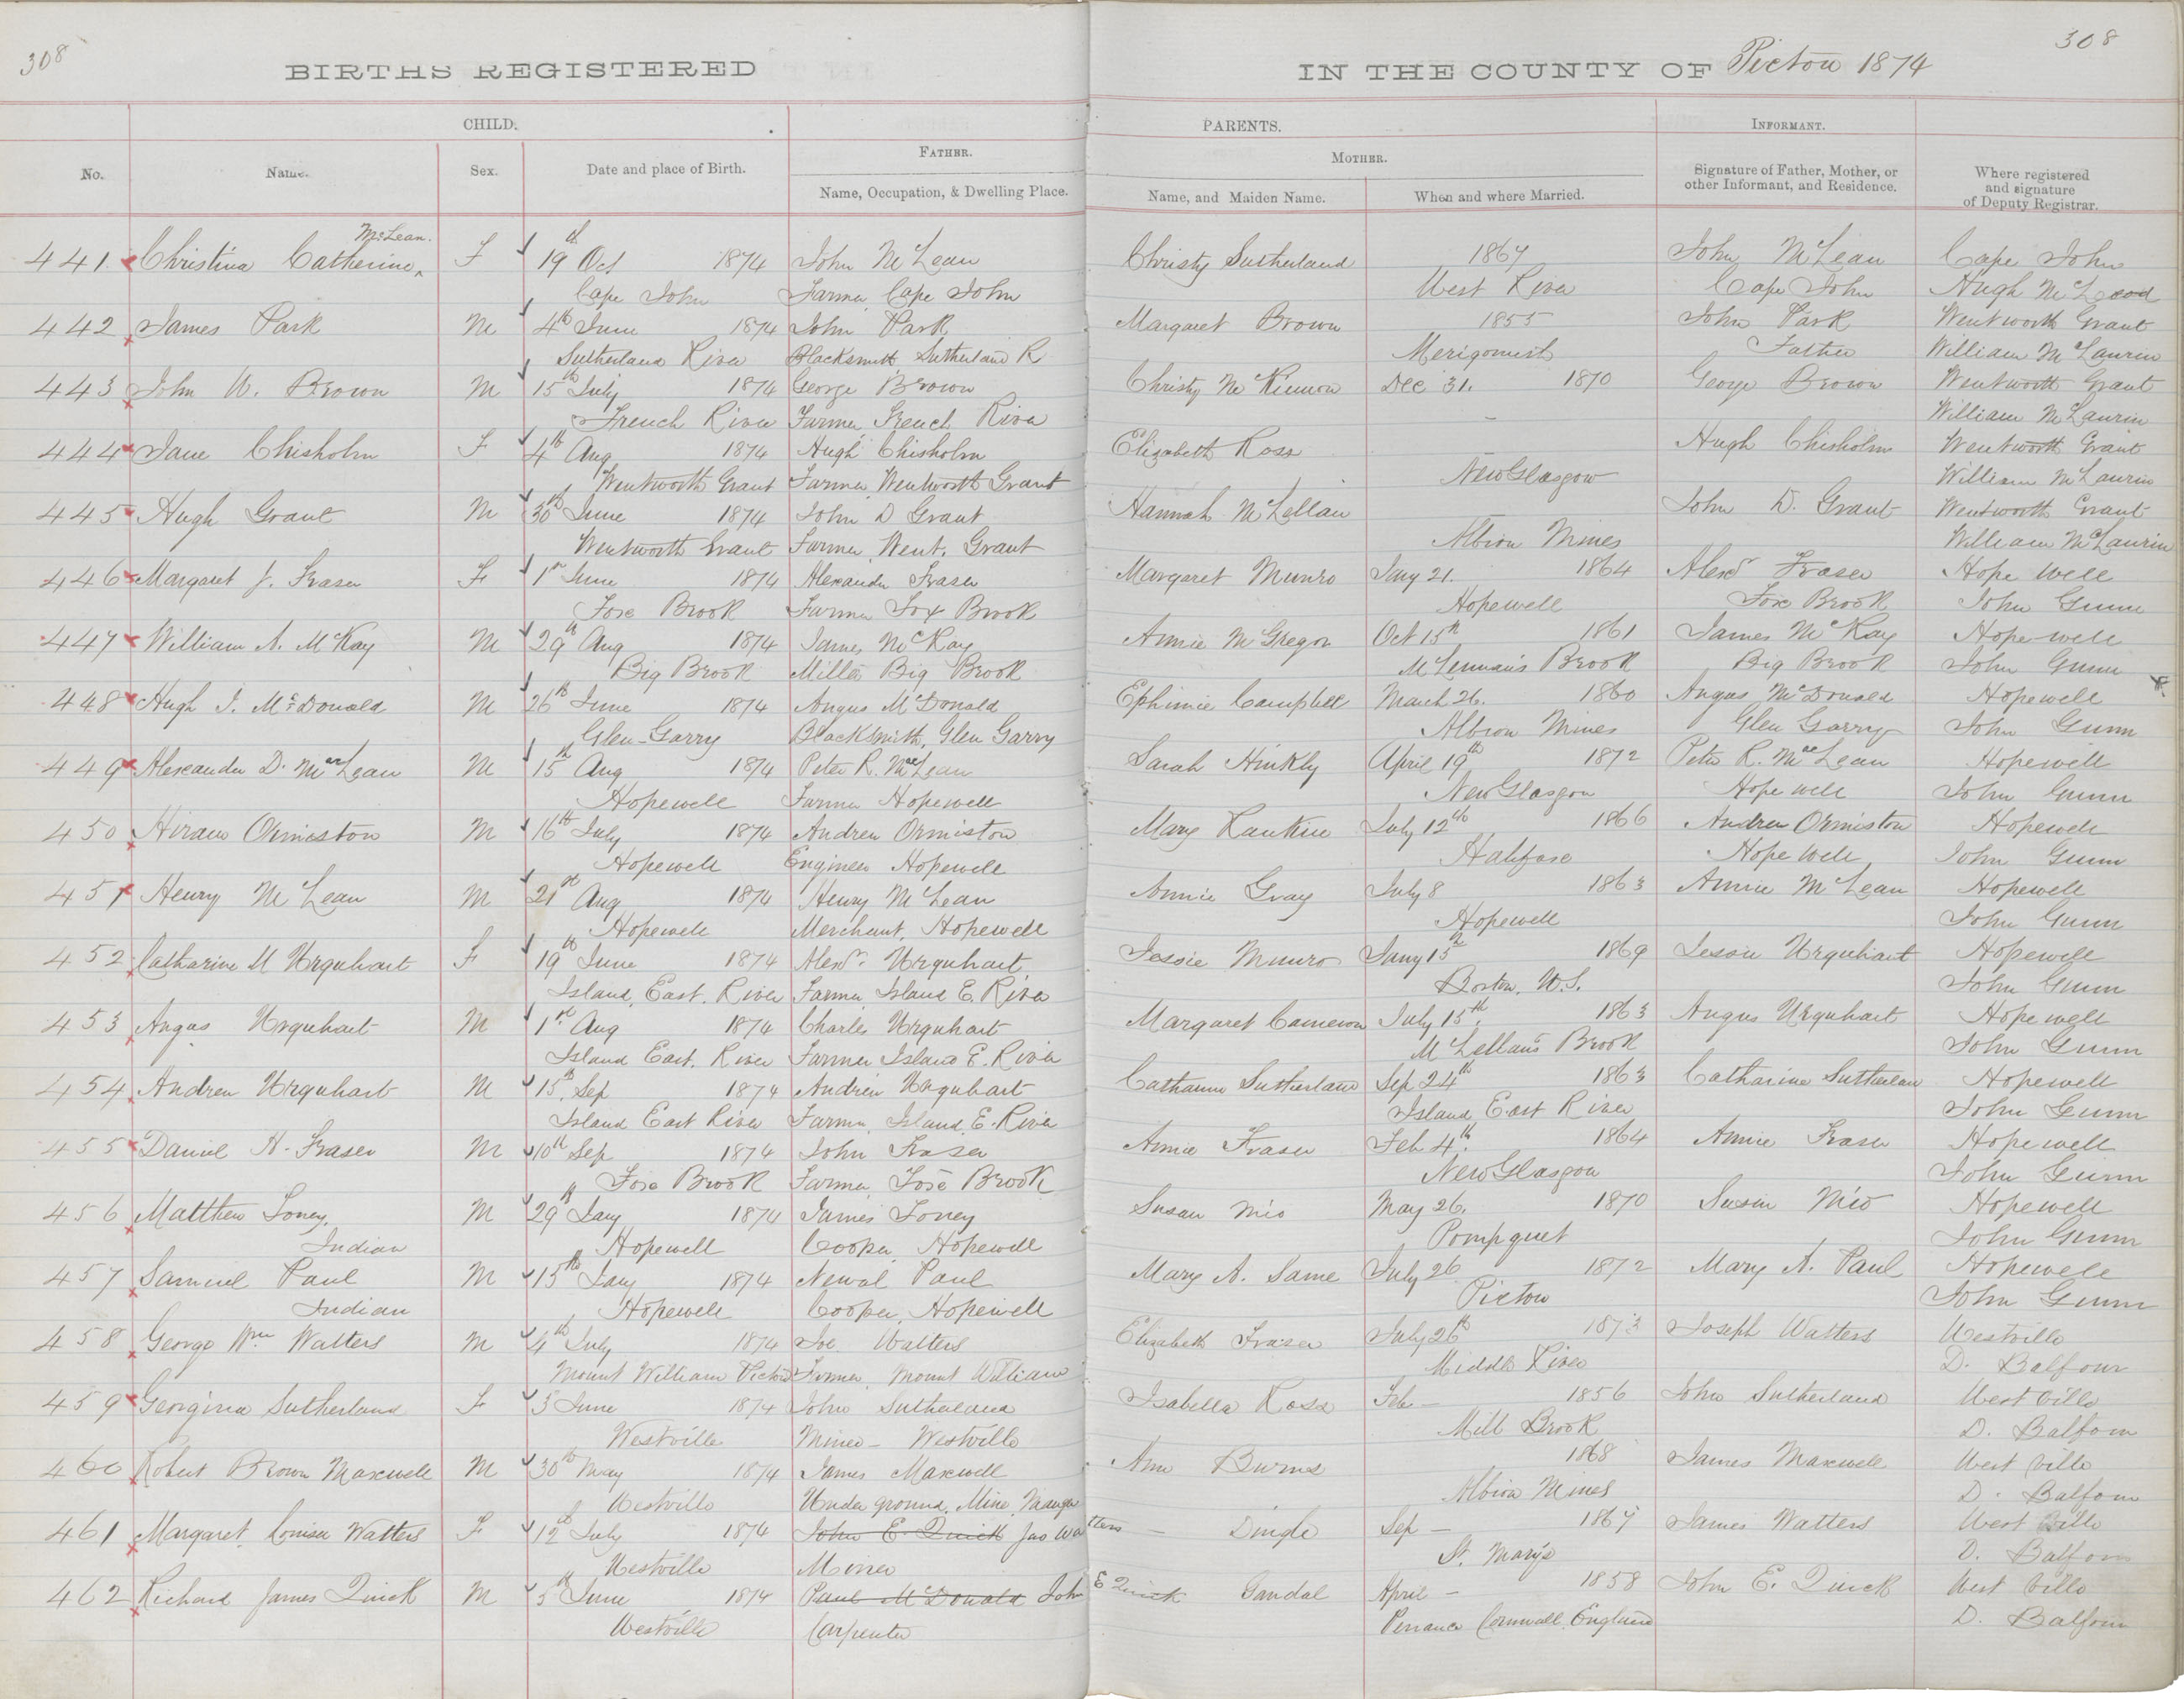 308
308
BIRTHS REGISTERED IN THE COUNTY OF Pictou 1874
CHILD. PARENTS. INFORMANT.
FATHER. MOTHER.
No. Name. Sex. Date and place of Birth. Name, Occupation, & Dwelling Place. Name, and Maiden Name. When and where Married. Signature of Father, Mother, or other Informant, and Residence. Where registered and signature of Deputy Registrar.
McLean.
441 Christina Catherine F 19th Oct 1874 John McLean Christy Sutherland 1867 John McLean Cape John
Cape John Farmer Cape John West River Cape John Hugh McLeod
442 James Park M 4th June 1874 John Park Margaret Brown 1855 John Park Wentworth Grant
Sutherland River Blacksmith Sutherland R Merigomish Father William McLaurin
443 John W. Brown M 15th July 1874 George Brown Christy McKinnon Dec 31. 1870 George Brown Wentworth Grant
French River Farmer French River – William McLaurin
444 Jane Chisholm F 4th Aug 1874 Hugh Chisholm Elizabeth Ross Hugh Chisholm Wentworth Grant
Wentworth Grant Farmer Wentworth Grant New Glasgow William McLaurin
445 Hugh Grant M 30th June 1874 John D Grant Hannah McLellan John D. Grant Wentworth Grant
Wentworth Grant Farmer Went. Grant Albion Mines William McLaurin
446 Margaret J. Fraser F 1st June 1874 Alexander Fraser Margaret Munro Jany 21. 1864 Alexr Fraser Hope well
Fox Brook Farmer Fox Brook Hopewell Fox Brook John Gunn
447 William A. McKay M 29th Aug 1874 James McKay Annie McGregor Oct 15th 1861 James McKay Hope well
Big Brook Miller Big Brook McLennan's Brook Big Brook John Gunn
448 Hugh J. McDonald M 26th June 1874 Angus McDonald Ephimie Campbell March 26. 1860 Angus McDonald Hopewell
Glen-Garry Blacksmith, Glen Garry Albion Mines Glen Garry John Gunn
449 Alexander D. MacLean M 15th Aug 1874 Peter R. MacLean Sarah Hinkly April 19th 1872 Peter R. MacLean Hopewell
Hopewell Farmer Hopewell New Glasgow Hope well John Gunn
450 Hiram Ormiston M 16th July 1874 Andrew Ormiston Mary Rankine July 12th 1866 Andrew Ormiston Hopewell
Hopewell Engineer Hopewell Halifax Hope Well John Gunn
451 Henry McLean M 21st Aug 1874 Henry McLean Annie Gray July 8 1863 Annie McLean Hopewell
Hopewell Merchant, Hopewell Hopewell John Gunn
452 Catharine M Urquhart F 19th June 1874 Alexr. Urquhart Jessie Munro Jany 15th 1869 Jessie Urquhart Hopewell
Island, East. River Farmer Island E. River Boston, U.S. John Gunn
453 Angus Urquhart M 1st Aug 1874 Charles Urquhart Margaret Cameron July 15th. 1863 Angus Urquhart Hope well
Island East. River Farmer Island E. River McLellan's Brook John Gunn
454 Andrew Urquhart M 15th. Sep 1874 Andrew Urquhart Catharine Sutherland Sep 24th 1863 Catharine Sutherlan Hopewell
Island East River Farmer, Island, E. River Island, East River John Gunn
455 Daniel H. Fraser M 10th Sep 1874 John Fraser Annie Fraser Feb 4th. 1864 Annie Fraser Hopewell
Fox Brook Farmer, Fox Brook New Glasgow John Gunn
456 Matthew Toney, M 29th Jany 1874 James Toney Susan Mio May 26. 1870 Susan Mio Hopewell
Indian Hopewell Cooper, Hopewell Pompquet John Gunn
457 Samuel Paul M 15th Jany 1874 Newal Paul Mary A. Same July 26 1872 Mary A. Paul Hopewell
Indian Hopewell Cooper, Hopewell Pictou John Gunn
458 George Wm Watters M 4th July 1874 Joe Watters Elizabeth Fraser July 26th 1873 Joseph Watters Westville
Mount William Pictou Farmer, Mount William Middle River D. Balfour
459 Georgina Sutherland F 3 June 1874 John Sutherland Isabella Ross Feb – 1856 John Sutherland West ville
Westville Miner – Westville Mill Brook D. Balfour
460 Robert Brown Maxwell M 30th May 1874 James Maxwell Ann Burns 1868 James Maxwell West ville
Westville Under ground, Mine, Manger Albion Mines D. Balfour
461 Margaret Louisa Watters F 12th July 1874 John E. Quick Jas Watters – Dingle Sep – 1867 James Watters West ville
Westville Miner St. Mary's D. Balfour
462 Richard James Quick M 5th June 1874 Paul McDonald John E Quick Gandal April – 1858 John E. Quick West ville
Westville Carpenter Penance Cornwall, England D. Balfour